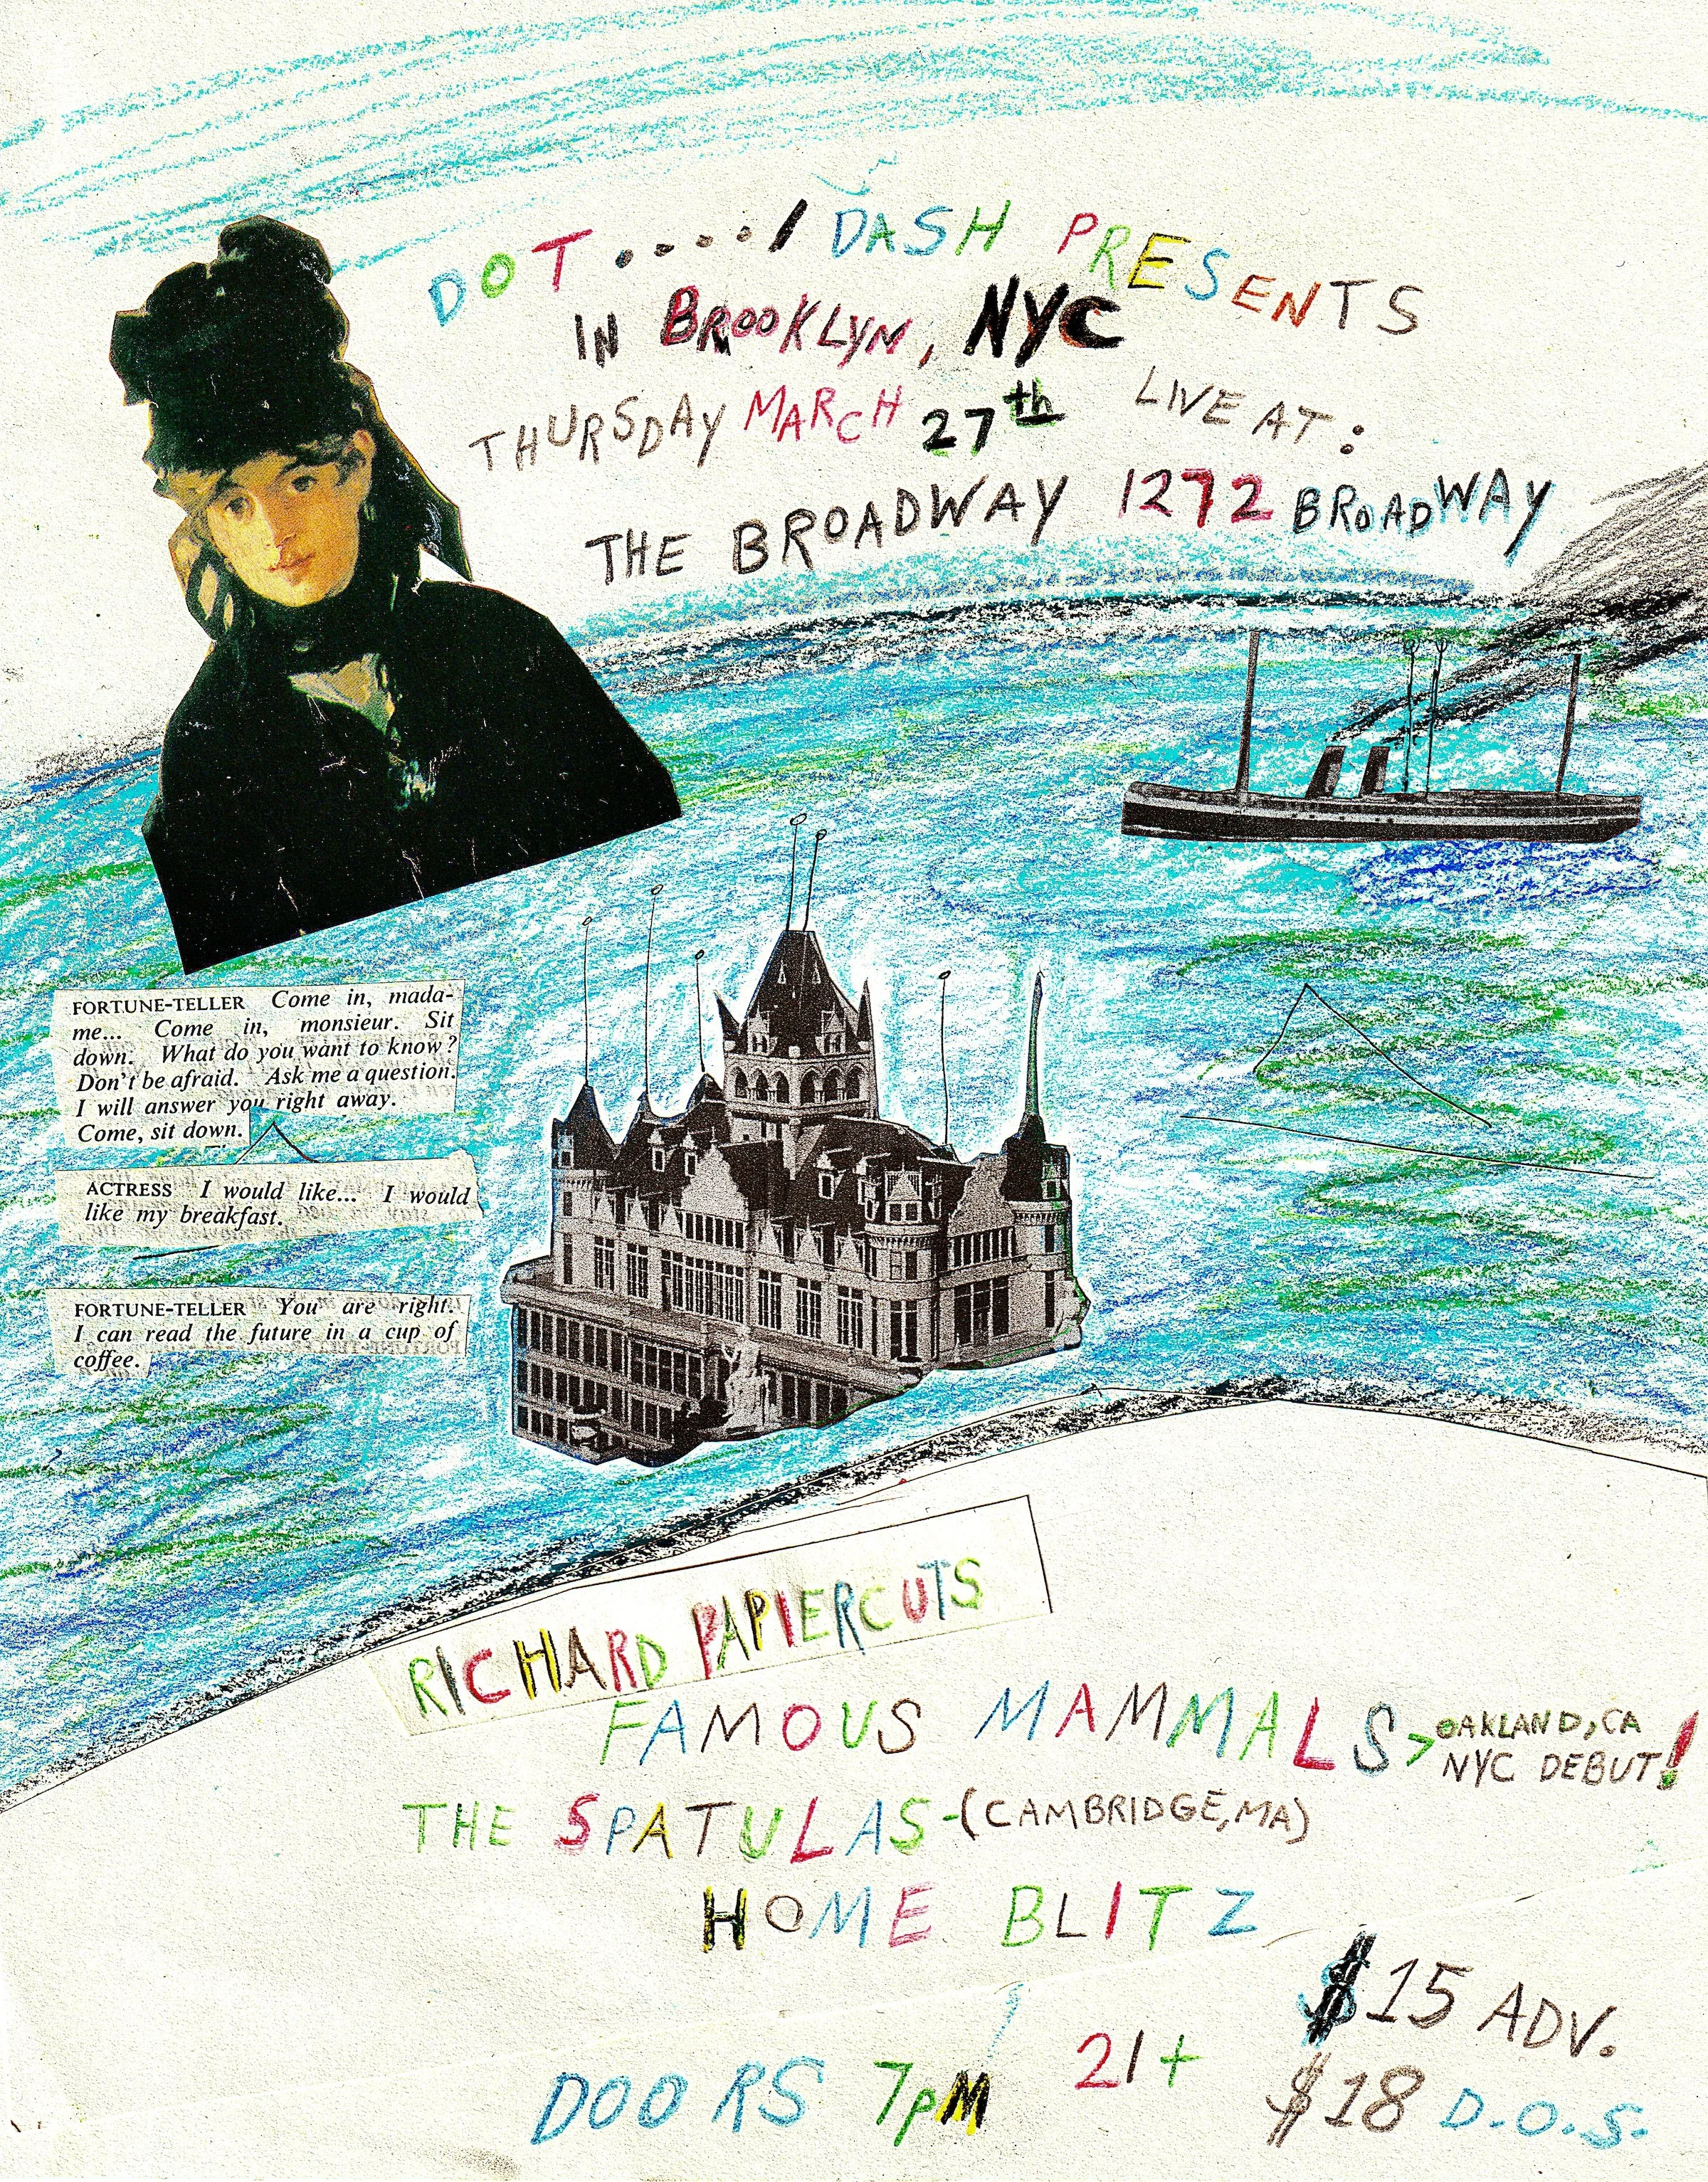 DOT..../ DASH PRESENTS
IN BROOKLYN, NYC
THURSDAY MARCH 27th LIVE AT:
THE BROADWAY 1272 BROADWAY
FORTUNE-TELLER Come in, mada-
me... Come in, monsieur. Sit
down. What do you want to know?
Don't be afraid. Ask me a question.
I will answer you right away.
Come, sit down.
ACTRESS I would like... I would
like my breakfast.
FORTUNE-TELLER You are right.
I can read the future in a cup of
coffee.
RICHARD PAPIERCUTS
FAMOUS MAMMALS > OAKLAND, CA
NYC DEBUT!
THE SPATULAS-(CAMBRIDGE, MA)
HOME BLITZ
$15 ADV.
DOORS 7PM 21+
$18 D.O.S.